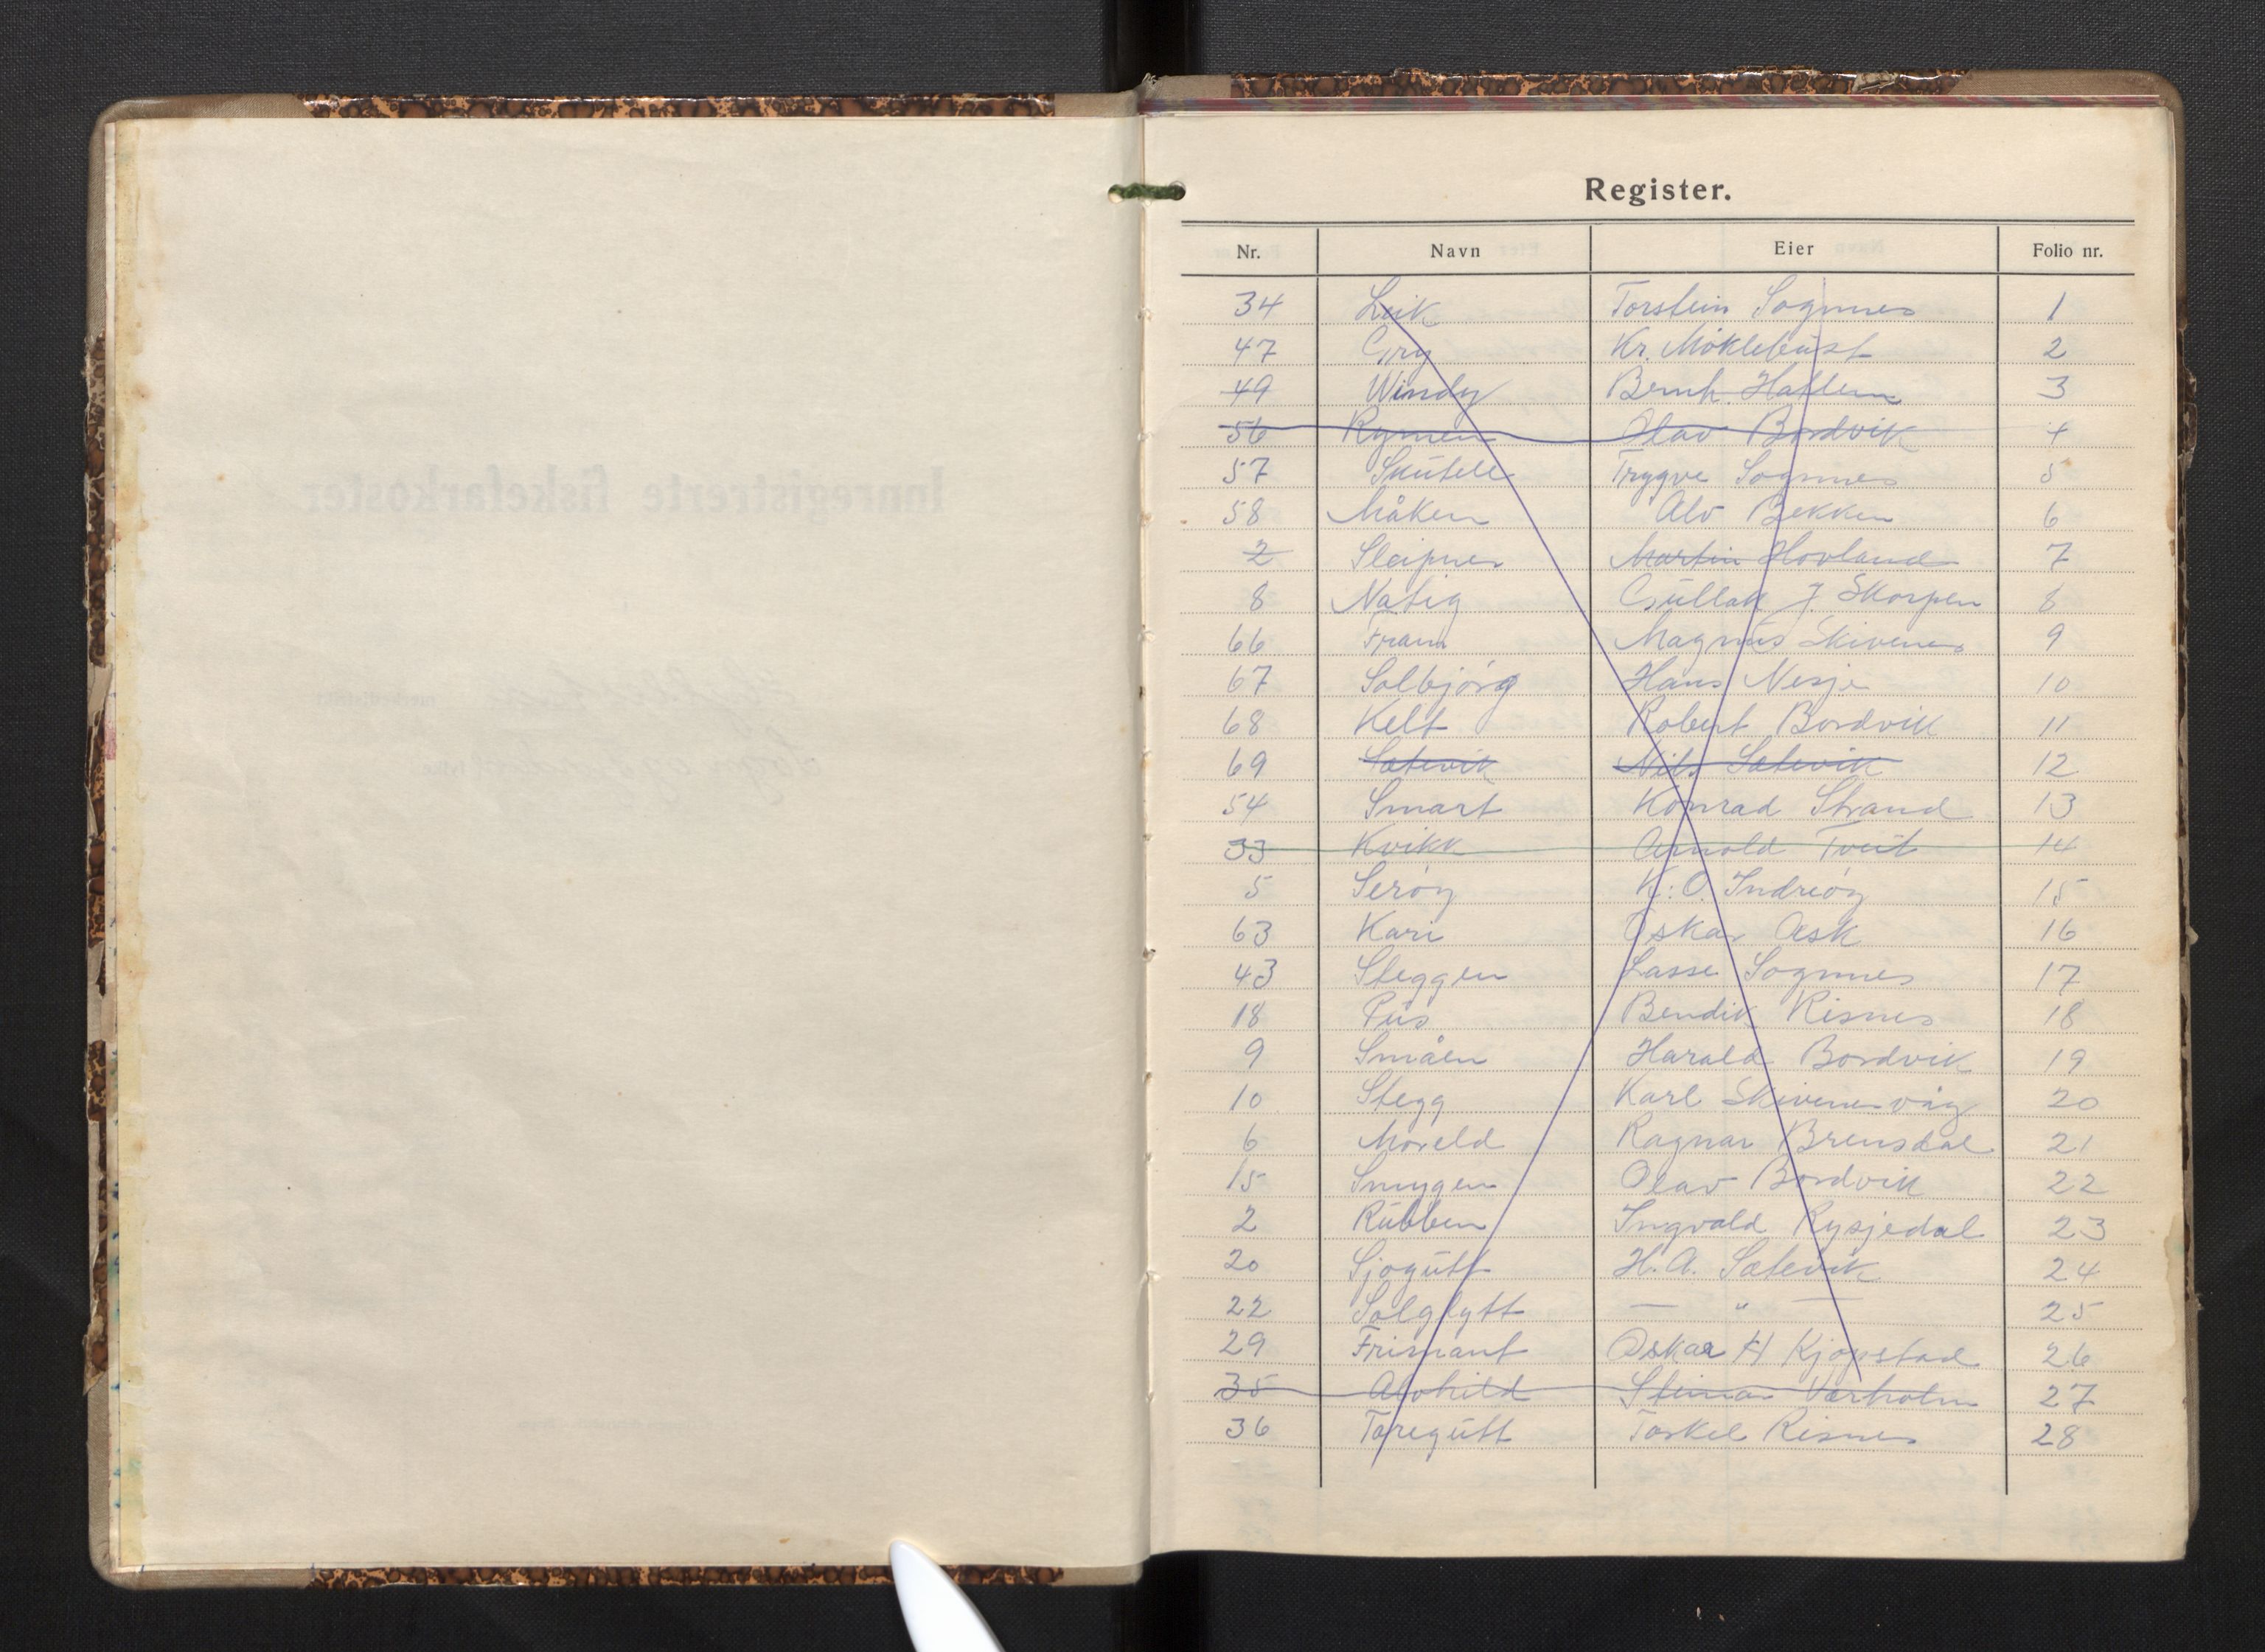 Register.
Nr. Navn Eier Folio nr.
34 Leik Torstein Sognnes 1
47 Gry Kr. Møklebust 2
49 Windy Bernh. Hatlem 3
56 Rymen Olav Bordvik 4
57 Skutele Trygve Sognnes 5
58 Måken Alv Bekken 6
2 Sleipner Martin Hovland 7
8 Natig Gullak J. Skorpen 8
66 Fram Magnus Skivenes 9
67 Solbjörg Hans Nesje 10
68 Kelt Robert Bordvik 11
69 Satevik Nils Satevik 12
54 Smart Konrad Strand 13
33 Kvikk Arnold Tveit 14
5 Seröy K. O. Indreöy 15
63 Kari Oskar Ask 16
43 Steggen Lasse Sognnes 17
18 Pus Bendik Risnes 18
9 Småen Harald Bordvik 19
10 Stegg Karl Skivenesvåg 20
6 Moreld Ragnar Brensdal 21
15 Smygen Olav Bordvik 22
2 Rubben Ingvald Rysjedal 23
20 Sjøgutt H. A. Satevik 24
22 Solglytt — " — 25
29 Frimant Oskar H Kjøpstad 26
35 Alvhild Steinar Værholm 27
36 Taregutt Torkel Risnes 28
Innregistrerte fiskefarkoster